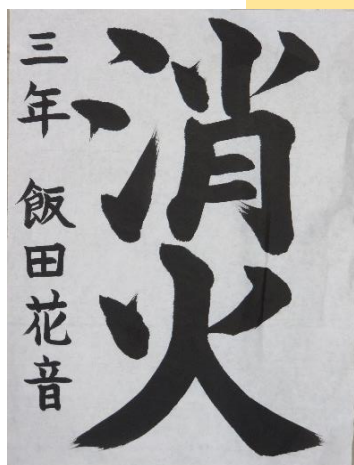 消火
三年 飯田花音